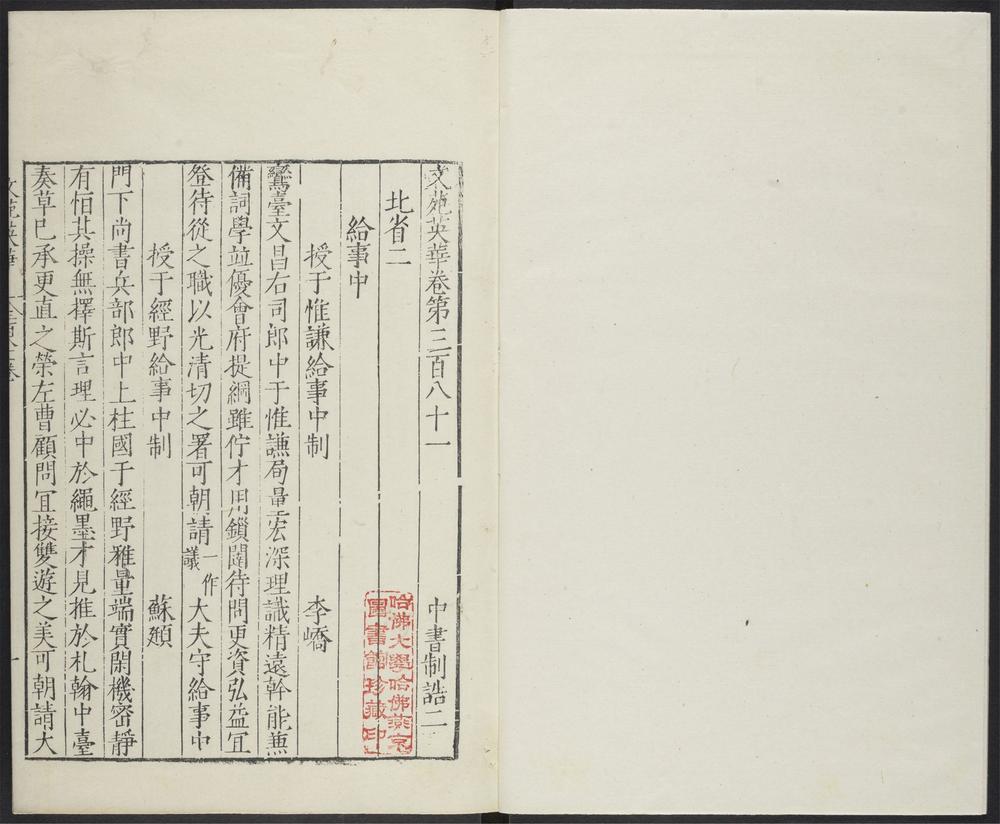 文苑英華卷第三百八十一 中書制誥二
北省二
給事中
授于惟謙給事中制 李嶠
鸞臺文昌右司郎中于惟謙局量宏深理識精遠幹能兼
備詞學並優會府提綱雖佇才用鎖闈待問更資弘益宜
登待從之職以光清切之署可朝請一作議大夫守給事中
授于經野給事中制 蘇頲
門下尚書兵部郎中上柱國于經野雅量端實閑機密靜
有恒其操無擇斯言理必中於繩墨才見推於札翰中臺
奏草已承更直之榮左曹顧問宜接雙遊之美可朝請大
哈佛大學哈佛燕京
圖書館珍藏印